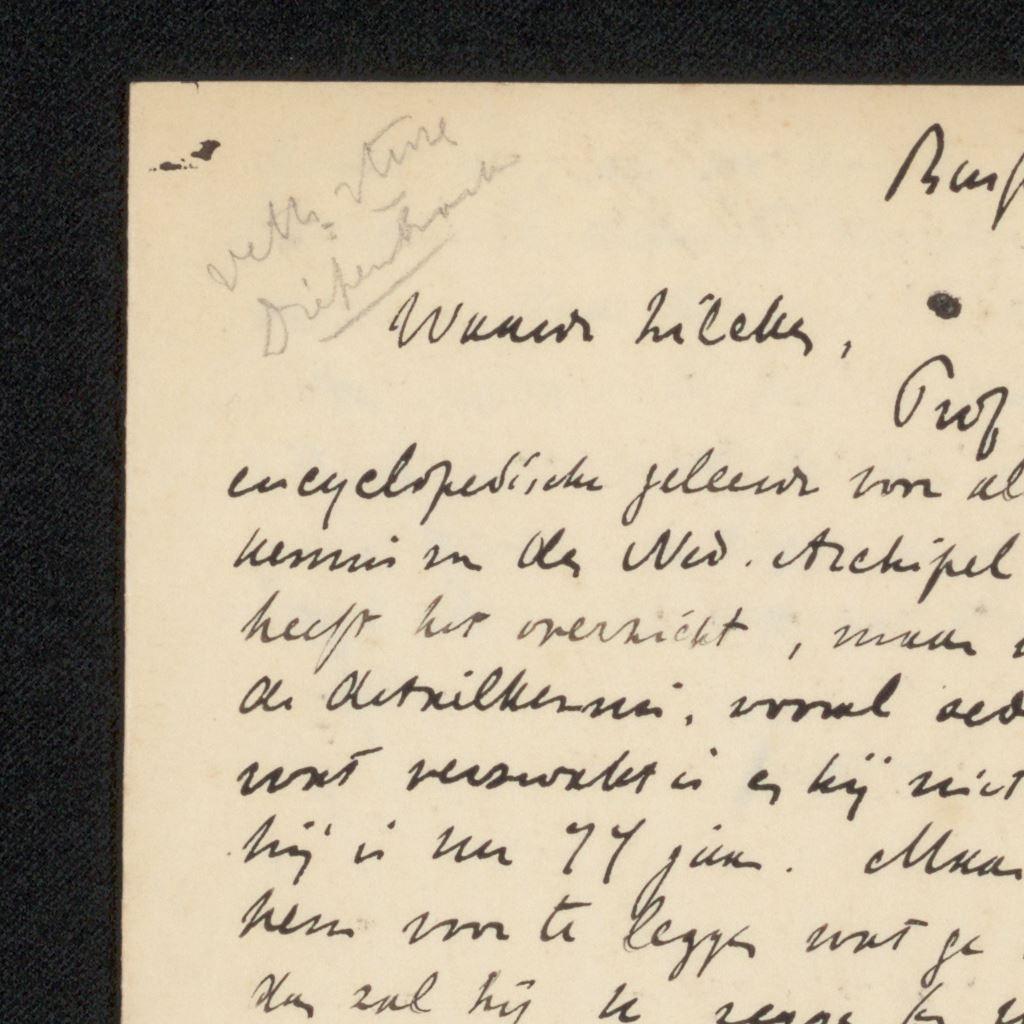 Veth-
Diepenbrock
Waarde Zilcken,
Prof
encyclopedische geleerde voor al
kennis van den Ned. Archipel
heeft het overzicht, maar
de detailkennis, vooral
wat verzwakt is en hij niet
hij is nu 77 jaar. Maar
hem voor te leggen wat ge
dan zal hij u